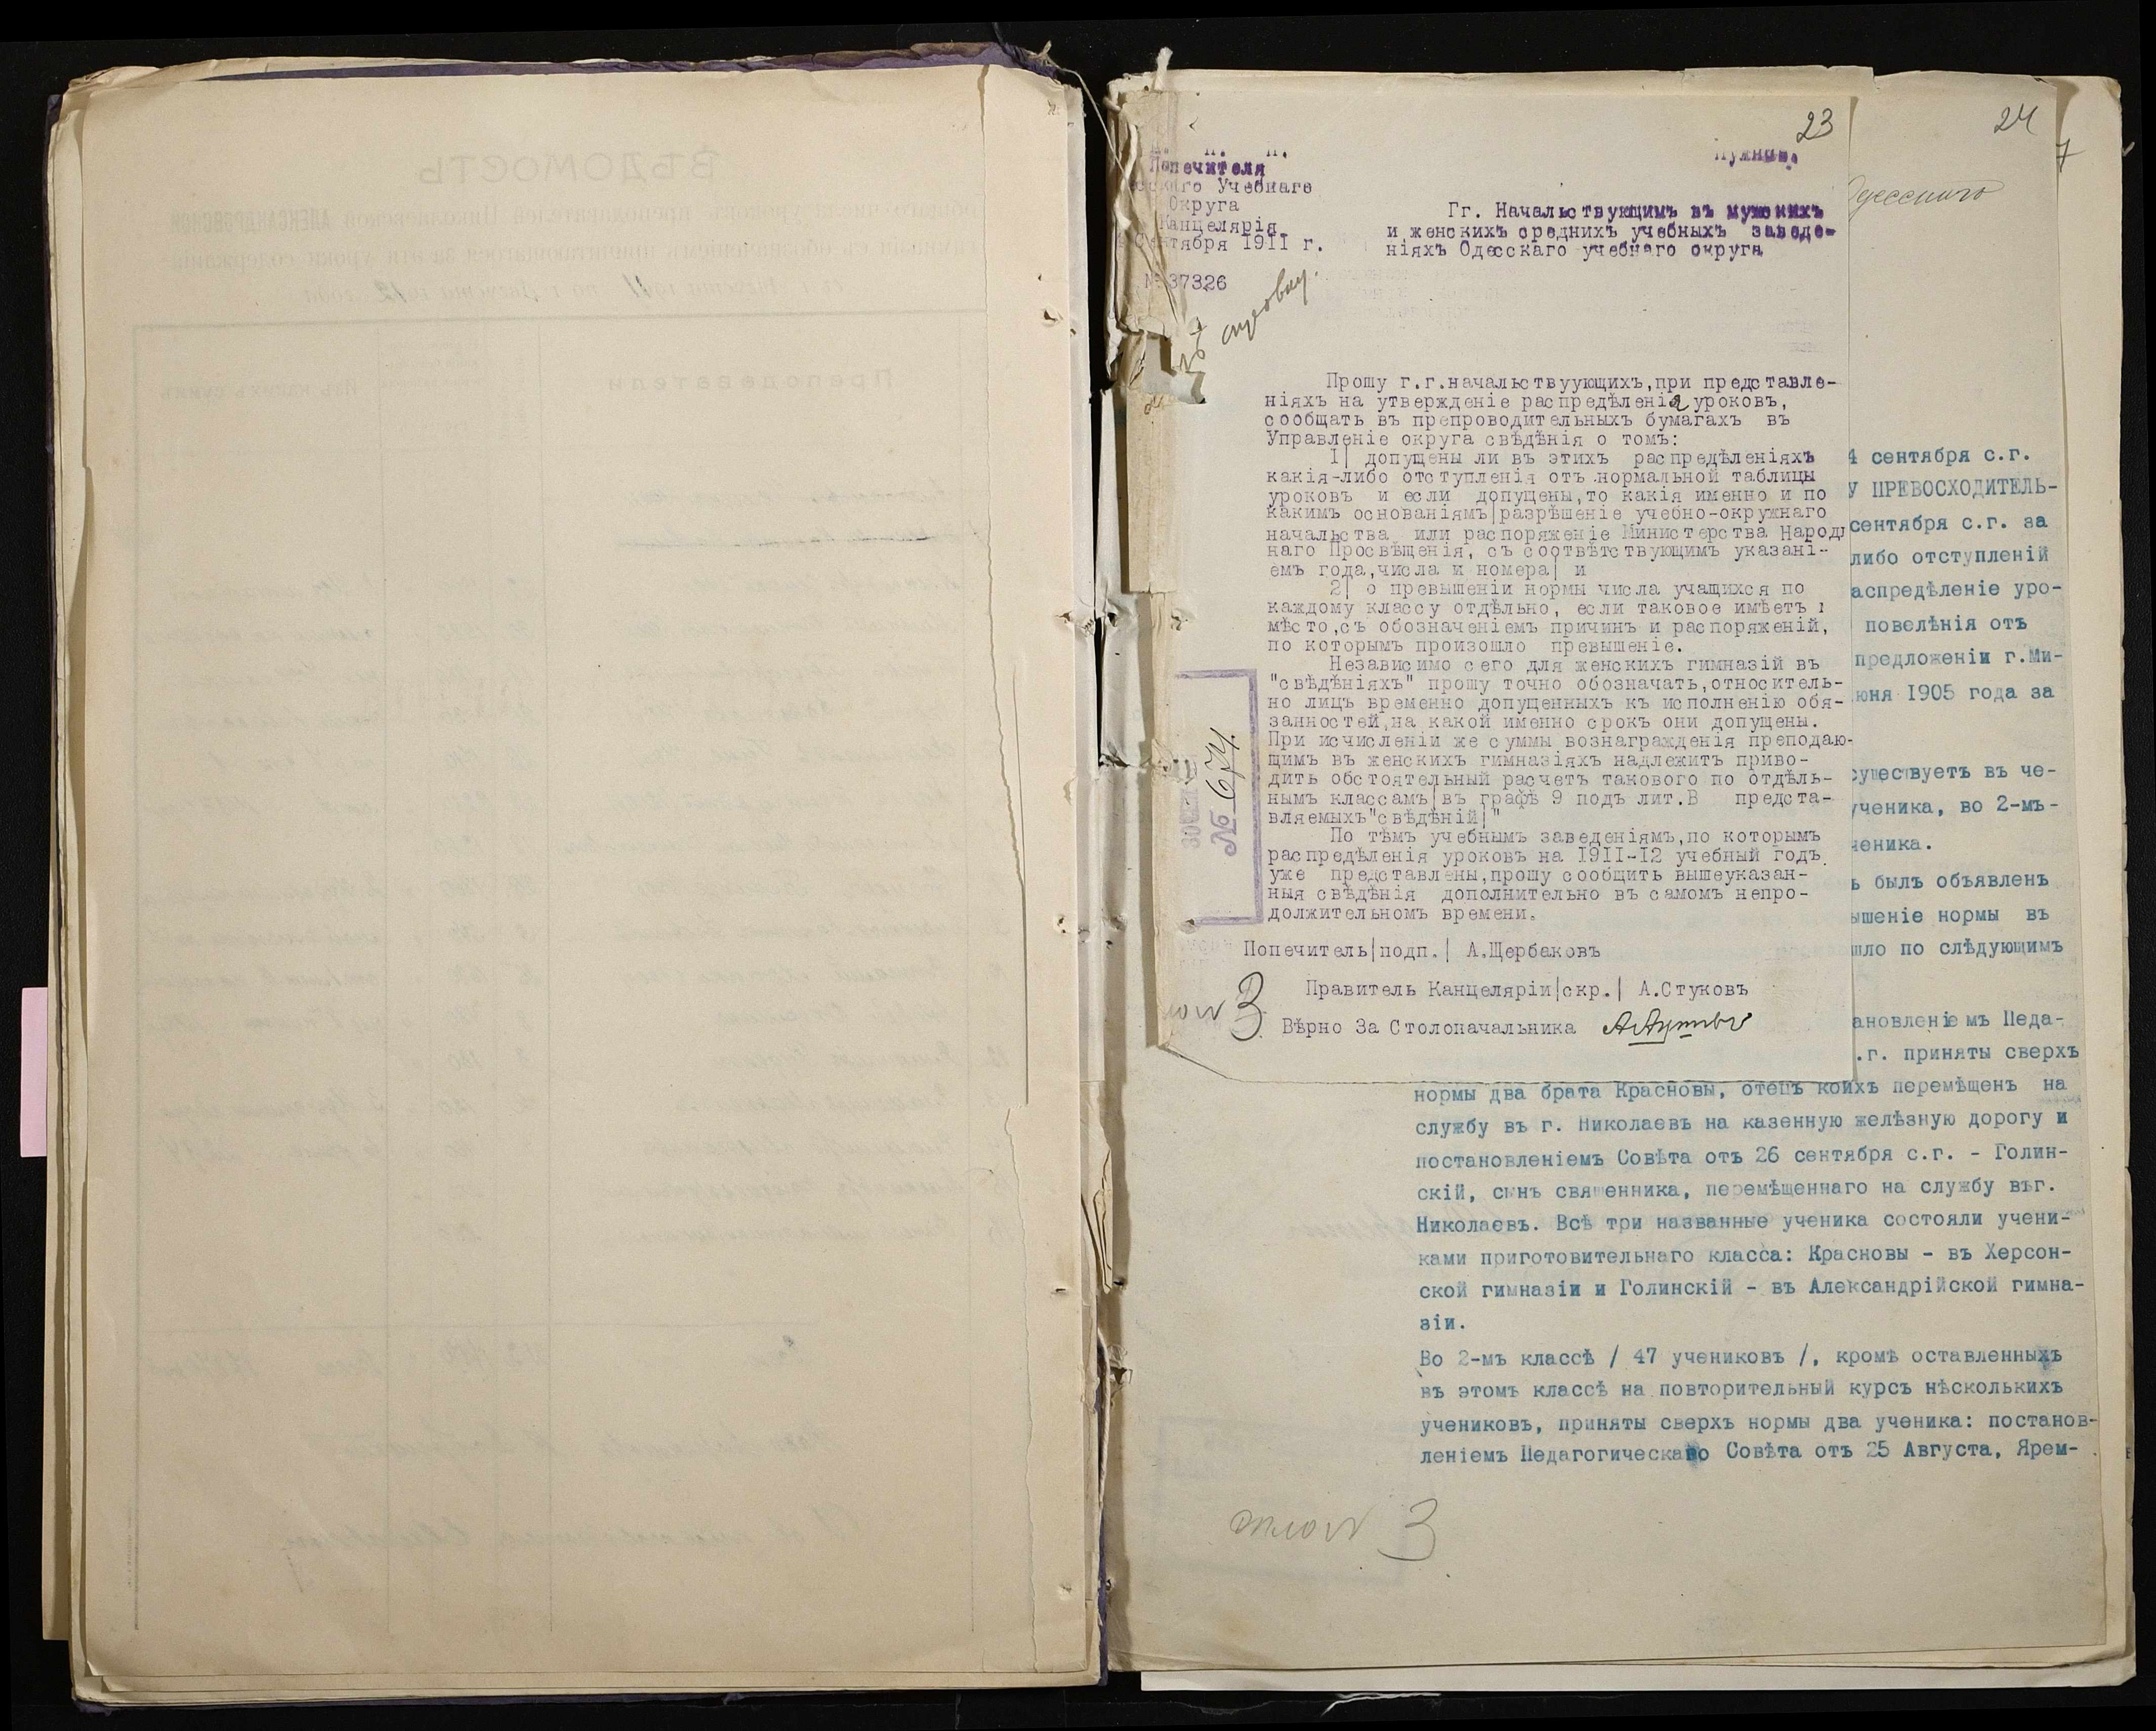 23
Попечителя
Учебнаго
Округа
Канцелярія
Сентября 1911 г.
№ 37326
Гг. Начальствующимъ въ мужскихъ
и женскихъ среднихъ учебныхъ заведе-
ніяхъ Одесскаго учебнаго округа
Прошу г.г.начальствуующихъ,при представле-
ніяхъ на утвержденіе распредѣленія уроковъ,
сообщать въ препроводительныхъ бумагахъ въ
Управленіе округа свѣдѣнія о томъ:
I| допущены ли въ этихъ распредѣленіяхъ
какія-либо отступленія отъ нормальной таблицы
уроковъ и если допущены,то какія именно и по
какимъ основаніямъ|разрѣшеніе учебно-окружнаго
начальства или распоряженіе Министерства Народ
наго Просвѣщенія, съ соотвѣтствующимъ указані-
емъ года,числа и номера| и
2| о превышеніи нормы числа учащихся по
каждому классу отдѣльно, если таковое имѣетъ
мѣсто,съ обозначеніемъ причинъ и распоряженій,
по которымъ произошло превышеніе.
Независимо сего для женскихъ гимназій въ
"свѣдѣніяхъ" прошу точно обозначать,относитель-
но лицъ временно допущенныхъ къ исполненію обя-
занностей,на какой именно срокъ они допущены.
При исчисленіи же суммы вознагражденія преподаю-
щимъ въ женскихъ гимназіяхъ надлежитъ приво-
дить обстоятельный расчетъ такового по отдѣль-
нымъ классамъ|въ графѣ 9 подъ лит.В предста-
вляемыхъ"свѣдѣній|"
По тѣмъ учебнымъ заведеніямъ,по которымъ
распредѣленія уроковъ на 1911-12 учебный годъ
уже представлены,прошу сообщить вышеуказан-
ныя свѣдѣнія дополнительно въ самомъ непро-
должительномъ времени.
Попечитель|подп.| А.Щербаковъ
Правитель Канцеляріи|скр.| А.Стуковъ
Вѣрно За Столоначальника
№ 674.
24
7
4 сентября с.г.
У ПРЕВОСХОДИТЕЛЬ-
сентября с.г. за
либо отступленій
аспредѣленіе уро-
повелѣнія отъ
предложеніи г.Ми-
юня 1905 года за
существуетъ въ че-
ученика, во 2-мъ-
ченика.
ь былъ объявленъ
ышеніе нормы въ
шло по слѣдующимъ
ановленіемъ Педа-
.г. приняты сверхъ
нормы два брата Красновы, отецъ коихъ перемѣщенъ на
службу въ г. Николаевъ на казенную желѣзную дорогу и
постановленіемъ Совѣта отъ 26 сентября с.г. - Голин-
скій, сынъ священника, перемѣщеннаго на службу въг.
Николаевъ. Всѣ три названные ученика состояли учени-
ками приготовительнаго класса: Красновы - въ Херсон-
ской гимназіи и Голинскій - въ Александрійской гимна-
зіи.
Во 2-мъ классѣ / 47 учениковъ /, кромѣ оставленныхъ
въ этомъ классѣ на повторительный курсъ нѣсколькихъ
учениковъ, приняты сверхъ нормы два ученика: постанов-
леніемъ Педагогическаго Совѣта отъ 25 Августа, Ярем-